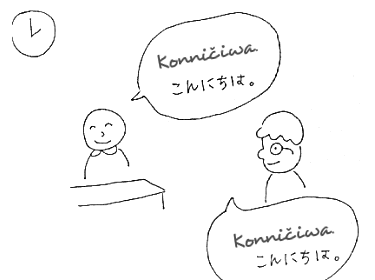 Konničiwa
こんにちは。
Konničiwa
こんにちは。